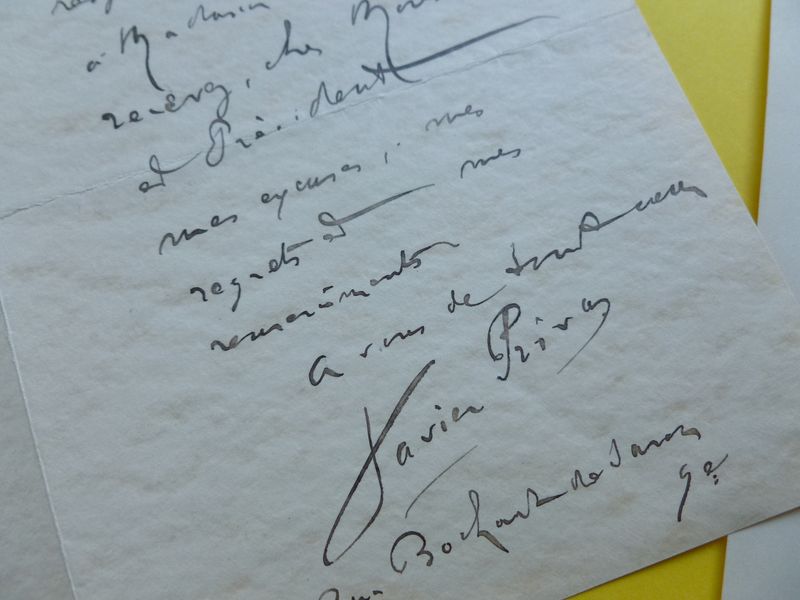 à Madame
recevez, cher Mon
et Président
mes excuses, mes
regrets et mes
remerciements
A vous de tout cœur
Xavier Privas
Rue Bochart de Saron
9e